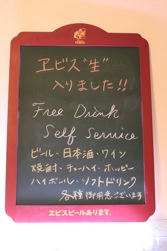 ヱビス"生"
入りました!!
Free Drink
Self Service
ビール・日本酒・ワイン
焼酎・チューハイ・ホッピー
ハイボール・ソフトドリンク
各種御用意ございます
ヱビスビールあります。